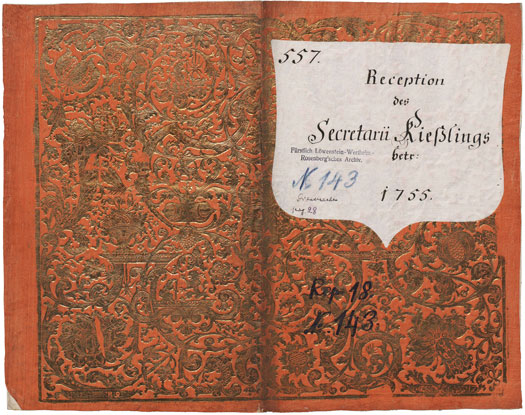 557.
Reception
des
Secretarii Kießlings
betr:
Fürstlich Löwenstein-Wertheim-
Rosenberg'sches Archiv.
N. 143
1755.
Kop. 18.
N. 143.